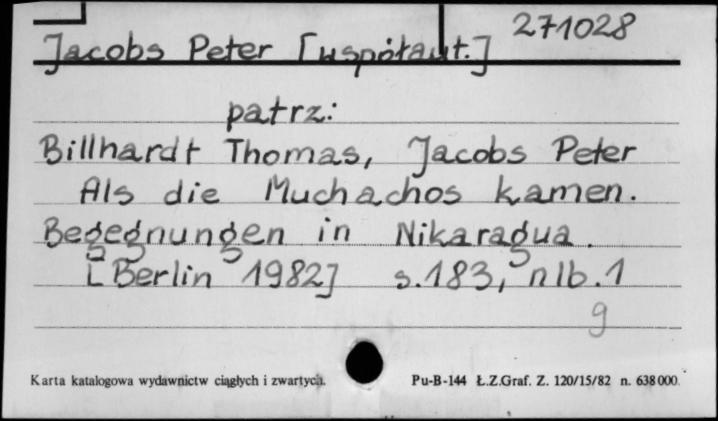 271028
Jacobs Peter [współaut.]
patrz:
Billhardt Thomas, Jacobs Peter
Als die Muchachos kamen.
Begegnungen in Nikaragua.
[Berlin 1982] s.183, nlb.1
g
Karta katalogowa wydawnictw ciągłych i zwartych. Pu-B-144 Ł.Z.Graf. Z. 120/15/82 n. 638000.